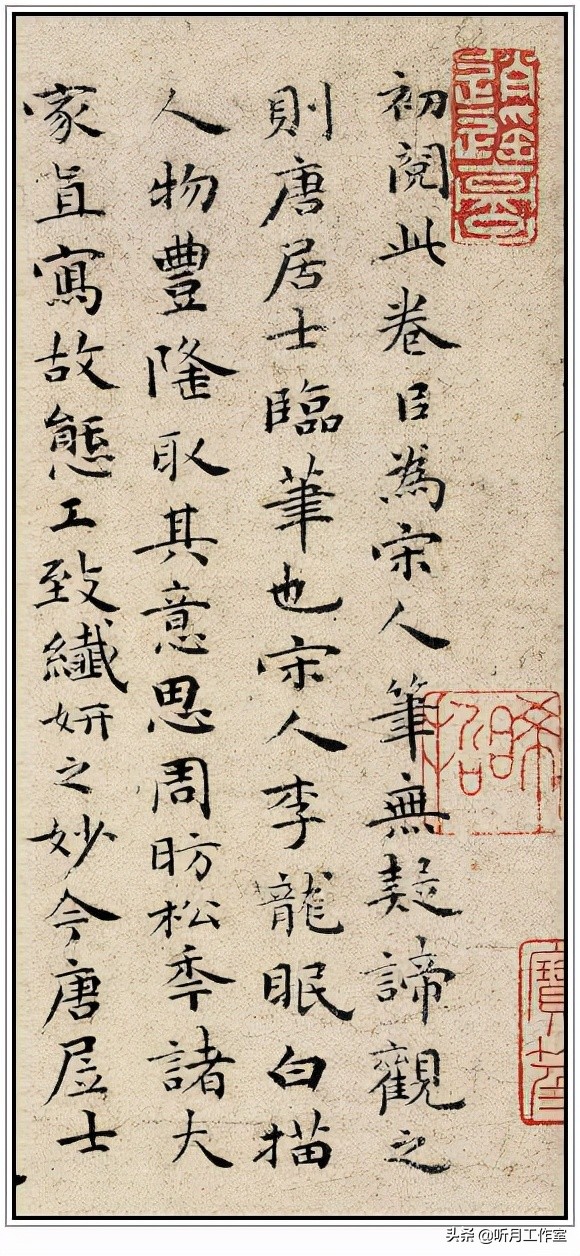 初閱此卷㠯為宋人筆無疑諦觀之
則唐居士臨筆也宋人李龍眠白描
人物豐隆取其意思周昉松秊諸大
家直寫故態工致纖妍之妙今唐居士
头条 @听月工作室